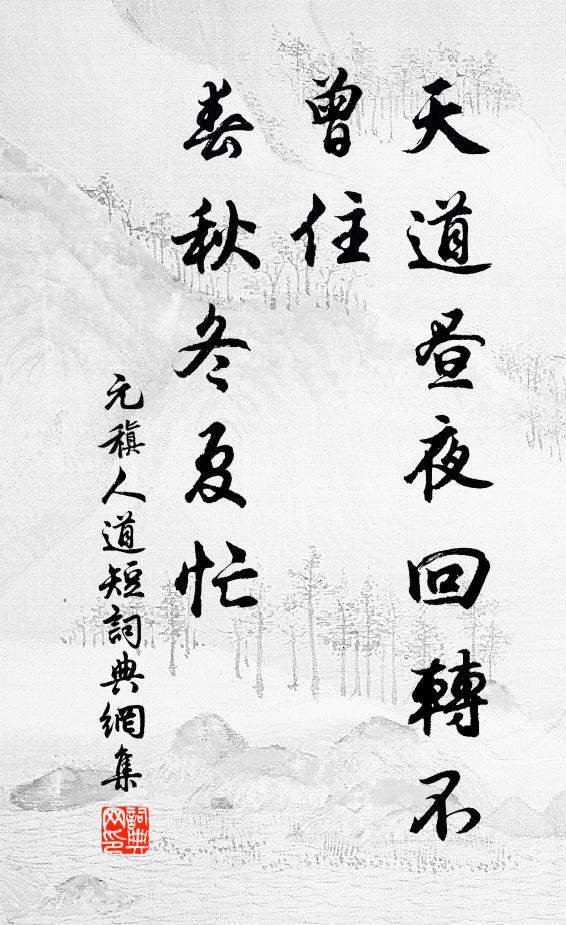 天道昼夜回轉不
曾住
春秋冬夏忙
元稹人道短詞典網集
詞典
网印